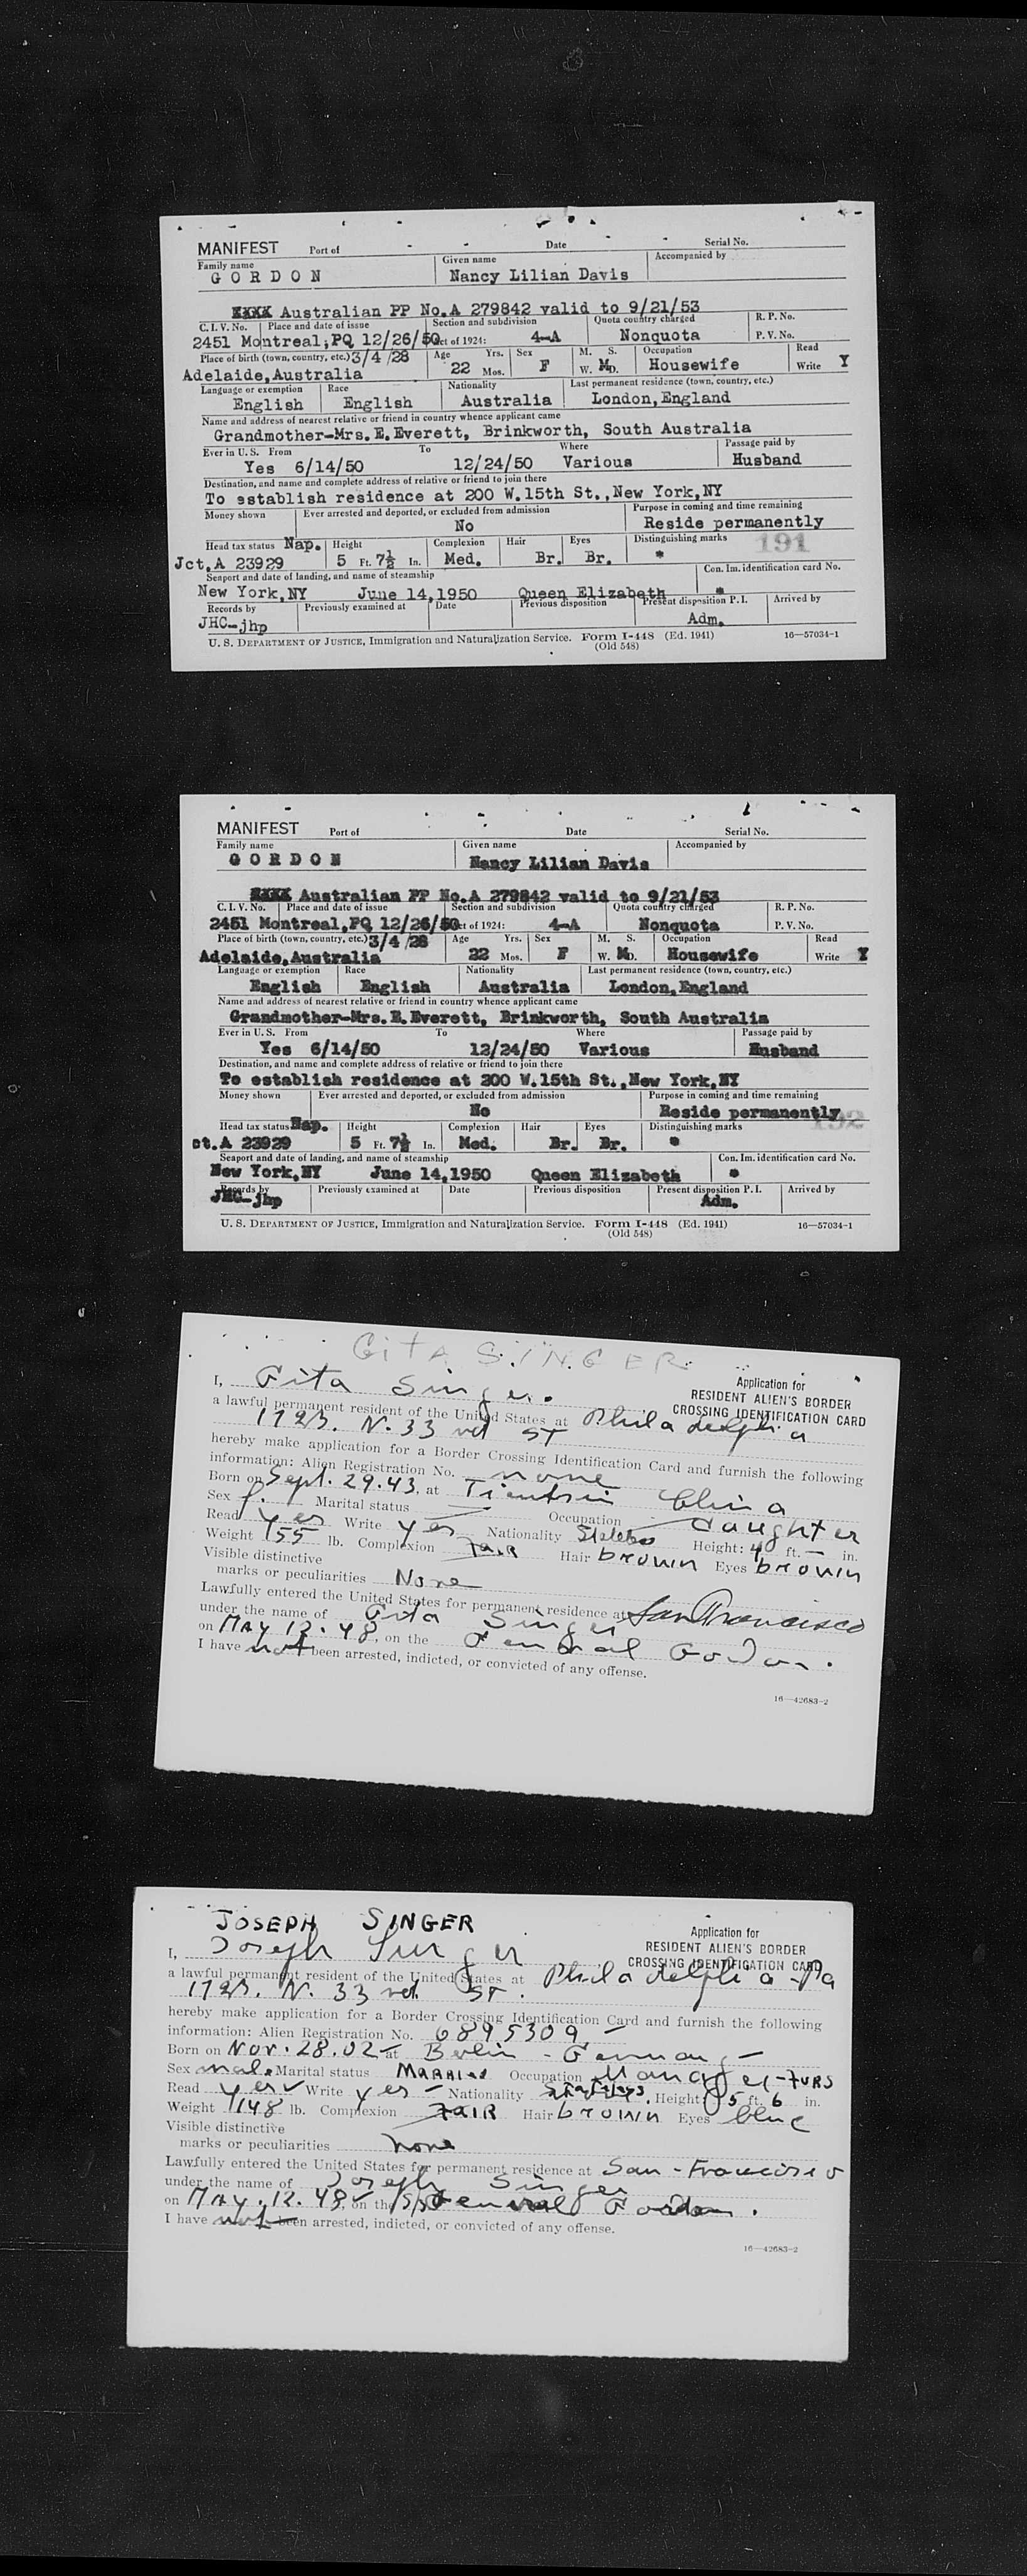 MANIFEST Port of Date Serial No.
Family name Given name Accompanied by
GORDON Nancy Lilian Davis
XXXX Australian PP No.A 279842 valid to 9/21/53
C. I. V. No. Place and date of issue Section and subdivision Quota country charged R. P. No.
2451 Montreal,PQ 12/26/50 Act of 1924: 4-A Nonquota P. V. No.
Place of birth (town, country, etc.) 3/4/28 Age Yrs. Sex M. S. Occupation Read
Adelaide,Australia 22 Mos. F W. M D. Housewife Write Y
Language or exemption Race Nationality Last permanent residence (town, country, etc.)
English English Australia London,England
Name and address of nearest relative or friend in country whence applicant came
Grandmother-Mrs.E.Everett, Brinkworth, South Australia
Ever in U. S. From To Where Passage paid by
Yes 6/14/50 12/24/50 Various Husband
Destination, and name and complete address of relative or friend to join there
To establish residence at 200 W.15th St.,New York,NY
Money shown Ever arrested and deported, or excluded from admission Purpose in coming and time remaining
No Reside permanently
Head tax status Nap. Height Complexion Hair Eyes Distinguishing marks 191
Jct.A 23929 5 Ft. 7½ In. Med. Br. Br. *
Seaport and date of landing, and name of steamship Con. Im. identification card No.
New York,NY June 14,1950 Queen Elizabeth *
Records by Previously examined at Date Previous disposition Present disposition P. I. Arrived by
JHC-jhp Adm.
U. S. DEPARTMENT OF JUSTICE, Immigration and Naturalization Service. Form I-448 (Ed. 1941) 16—57034-1
(Old 548)
MANIFEST Port of Date Serial No.
Family name Given name Accompanied by
GORDON Nancy Lilian Davis
XXXX Australian PP No.A 279842 valid to 9/21/53
C. I. V. No. Place and date of issue Section and subdivision Quota country charged R. P. No.
2451 Montreal,PQ 12/26/50 Act of 1924: 4-A Nonquota P. V. No.
Place of birth (town, country, etc.) 3/4/28 Age Yrs. Sex M. S. Occupation Read
Adelaide,Australia 22 Mos. F W. M D. Housewife Write Y
Language or exemption Race Nationality Last permanent residence (town, country, etc.)
English English Australia London,England
Name and address of nearest relative or friend in country whence applicant came
Grandmother-Mrs.E.Everett, Brinkworth, South Australia
Ever in U. S. From To Where Passage paid by
Yes 6/14/50 12/24/50 Various Husband
Destination, and name and complete address of relative or friend to join there
To establish residence at 200 W.15th St.,New York,NY
Money shown Ever arrested and deported, or excluded from admission Purpose in coming and time remaining
No Reside permanently 192
Head tax status Nap. Height Complexion Hair Eyes Distinguishing marks
ct.A 23929 5 Ft. 7½ In. Med. Br. Br. *
Seaport and date of landing, and name of steamship Con. Im. identification card No.
New York,NY June 14,1950 Queen Elizabeth *
Records by Previously examined at Date Previous disposition Present disposition P. I. Arrived by
JHC-jhp Adm.
U. S. DEPARTMENT OF JUSTICE, Immigration and Naturalization Service. Form I-448 (Ed. 1941) 16—57034-1
(Old 548)
GITA SINGER
Application for
RESIDENT ALIEN'S BORDER
CROSSING IDENTIFICATION CARD
I, Gita Singer.
a lawful permanent resident of the United States at Philadelphia
1723. N. 33 rd ST
hereby make application for a Border Crossing Identification Card and furnish the following
information: Alien Registration No. none
Born on Sept. 29.43, at Tientsin China
Sex f. Marital status — Occupation daughter
Read yes Write yes Nationality Height: 4 ft. — in.
Weight 55 lb. Complexion FAIR Hair brown Eyes brown
Visible distinctive
marks or peculiarities None
Lawfully entered the United States for permanent residence at San Francisco
under the name of Gita Singer
on MAY 12.48, on the General Gordon.
I have not been arrested, indicted, or convicted of any offense.
16—42683-2
JOSEPH SINGER
Application for
RESIDENT ALIEN'S BORDER
CROSSING IDENTIFICATION CARD
I, Joseph Singer
a lawful permanent resident of the United States at Philadelphia Pa
1723. N. 33 rd. ST.
hereby make application for a Border Crossing Identification Card and furnish the following
information: Alien Registration No. 6895309 —
Born on Nov. 28.02 at Berlin - Germany —
Sex male Marital status MARRIED Occupation Manager - FURS
Read yes Write yes — Nationality Height: 5 ft. 6 in.
Weight 148 lb. Complexion FAIR Hair brown Eyes blue
Visible distinctive
marks or peculiarities none
Lawfully entered the United States for permanent residence at San - Francisco
under the name of Joseph Singer
on MAY. 12. 48, on the General Gordon.
I have not been arrested, indicted, or convicted of any offense.
16—42683-2